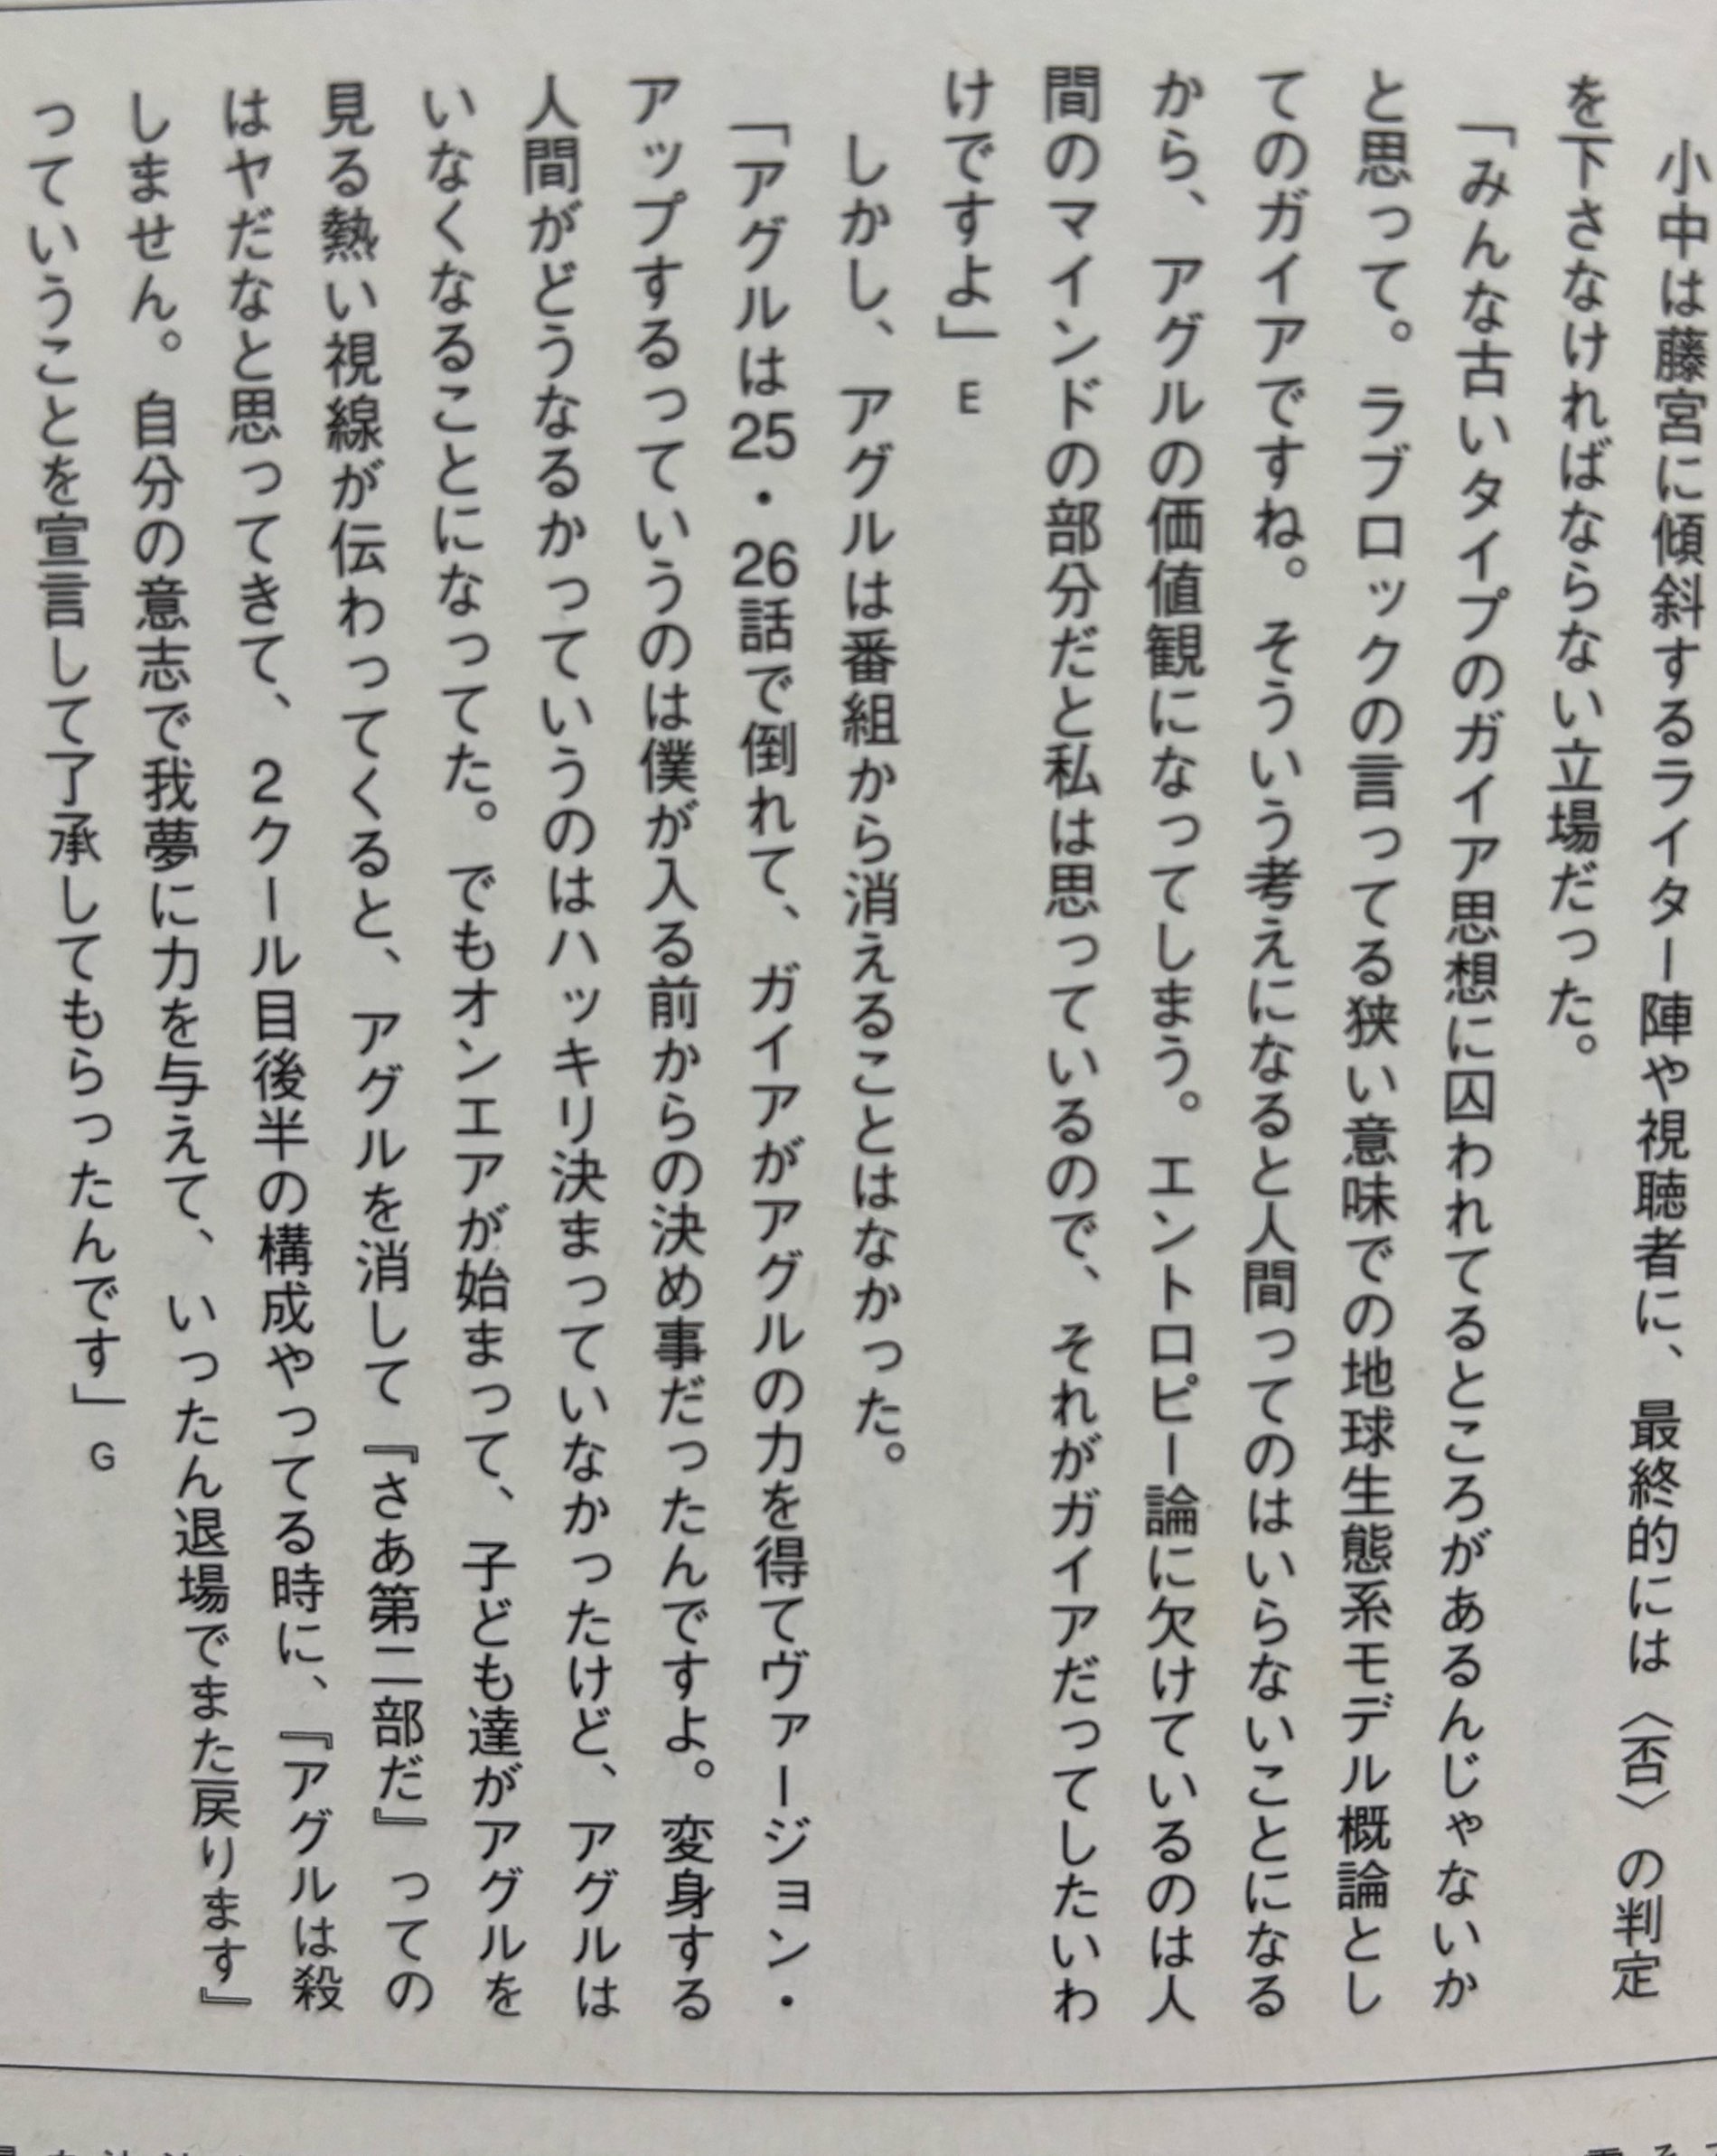 小中は藤宮に傾斜するライター陣や視聴者に、最終的には〈否〉の判定
を下さなければならない立場だった。
「みんな古いタイプのガイア思想に囚われてるところがあるんじゃないか
と思って。ラブロックの言ってる狭い意味での地球生態系モデル概論とし
てのガイアですね。そういう考えになると人間ってのはいらないことになる
から、アグルの価値観になってしまう。エントロピー論に欠けているのは人
間のマインドの部分だと私は思っているので、それがガイアだってしたいわ
けですよ」E
しかし、アグルは番組から消えることはなかった。
「アグルは25・26話で倒れて、ガイアがアグルの力を得てヴァージョン・
アップするっていうのは僕が入る前からの決め事だったんですよ。変身する
人間がどうなるかっていうのはハッキリ決まっていなかったけど、アグルは
いなくなることになってた。でもオンエアが始まって、子ども達がアグルを
見る熱い視線が伝わってくると、アグルを消して『さあ第二部だ』っての
はヤだなと思ってきて、2クール目後半の構成やってる時に、『アグルは殺
しません。自分の意志で我夢に力を与えて、いったん退場でまた戻ります』
っていうことを宣言して了承してもらったんです」G